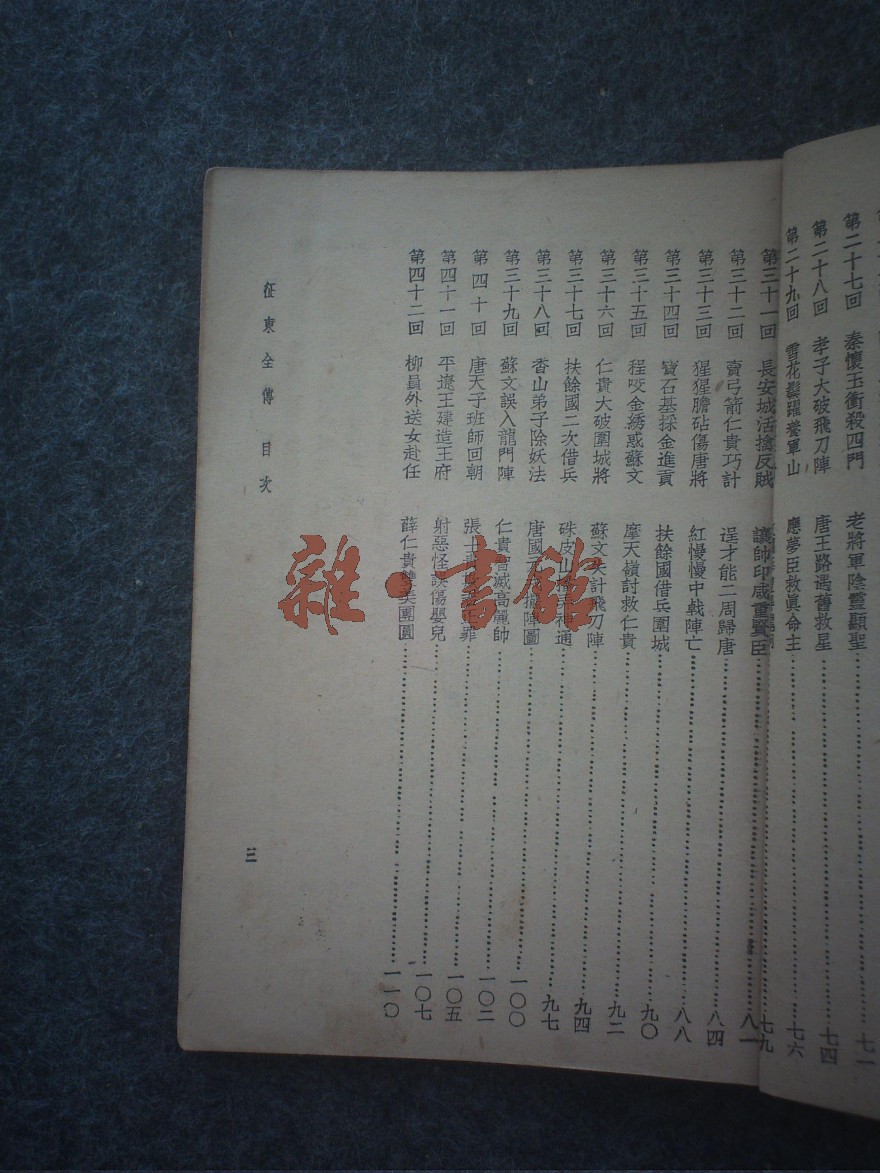 第二十七回 秦懷玉衝殺四門 老將軍陰靈顯聖 七一
第二十八回 孝子大破飛刀陣 唐王路遇舊救星 七四
第二十九回 雪花鬃躍養軍山 應夢臣救眞命主 七六
第三十一回 長安城活擒反賊 讓帥印咸重賢臣 七九
第三十二回 賣弓箭仁貴巧計 逞才能二周歸唐 八一
第三十三回 猩猩膽砧傷唐將 紅慢慢中戟陣亡 八四
第三十四回 寶石基採金進貢 扶餘國借兵圍城 八八
第三十五回 程咬金綉惑蘇文 摩天嶺討救仁貴 九〇
第三十六回 仁貴大破圍城將 蘇文失計飛刀陣 九二
第三十七回 扶餘國二次借兵 硃皮山 神通 九四
第三十八回 香山弟子除妖法 唐國 擺陣圖 九七
第三十九回 蘇文誤入龍門陣 仁貴 滅高麗帥 一〇〇
第四十回 唐天子班師回朝 張士 罪 一〇二
第四十一回 平遼王建造王府 射惡怪誤傷嬰兒 一〇五
第四十二回 柳員外送女赴任 薛仁貴雙美團圓 一〇七
一一〇
征東全傳 目次
三
雜·書館